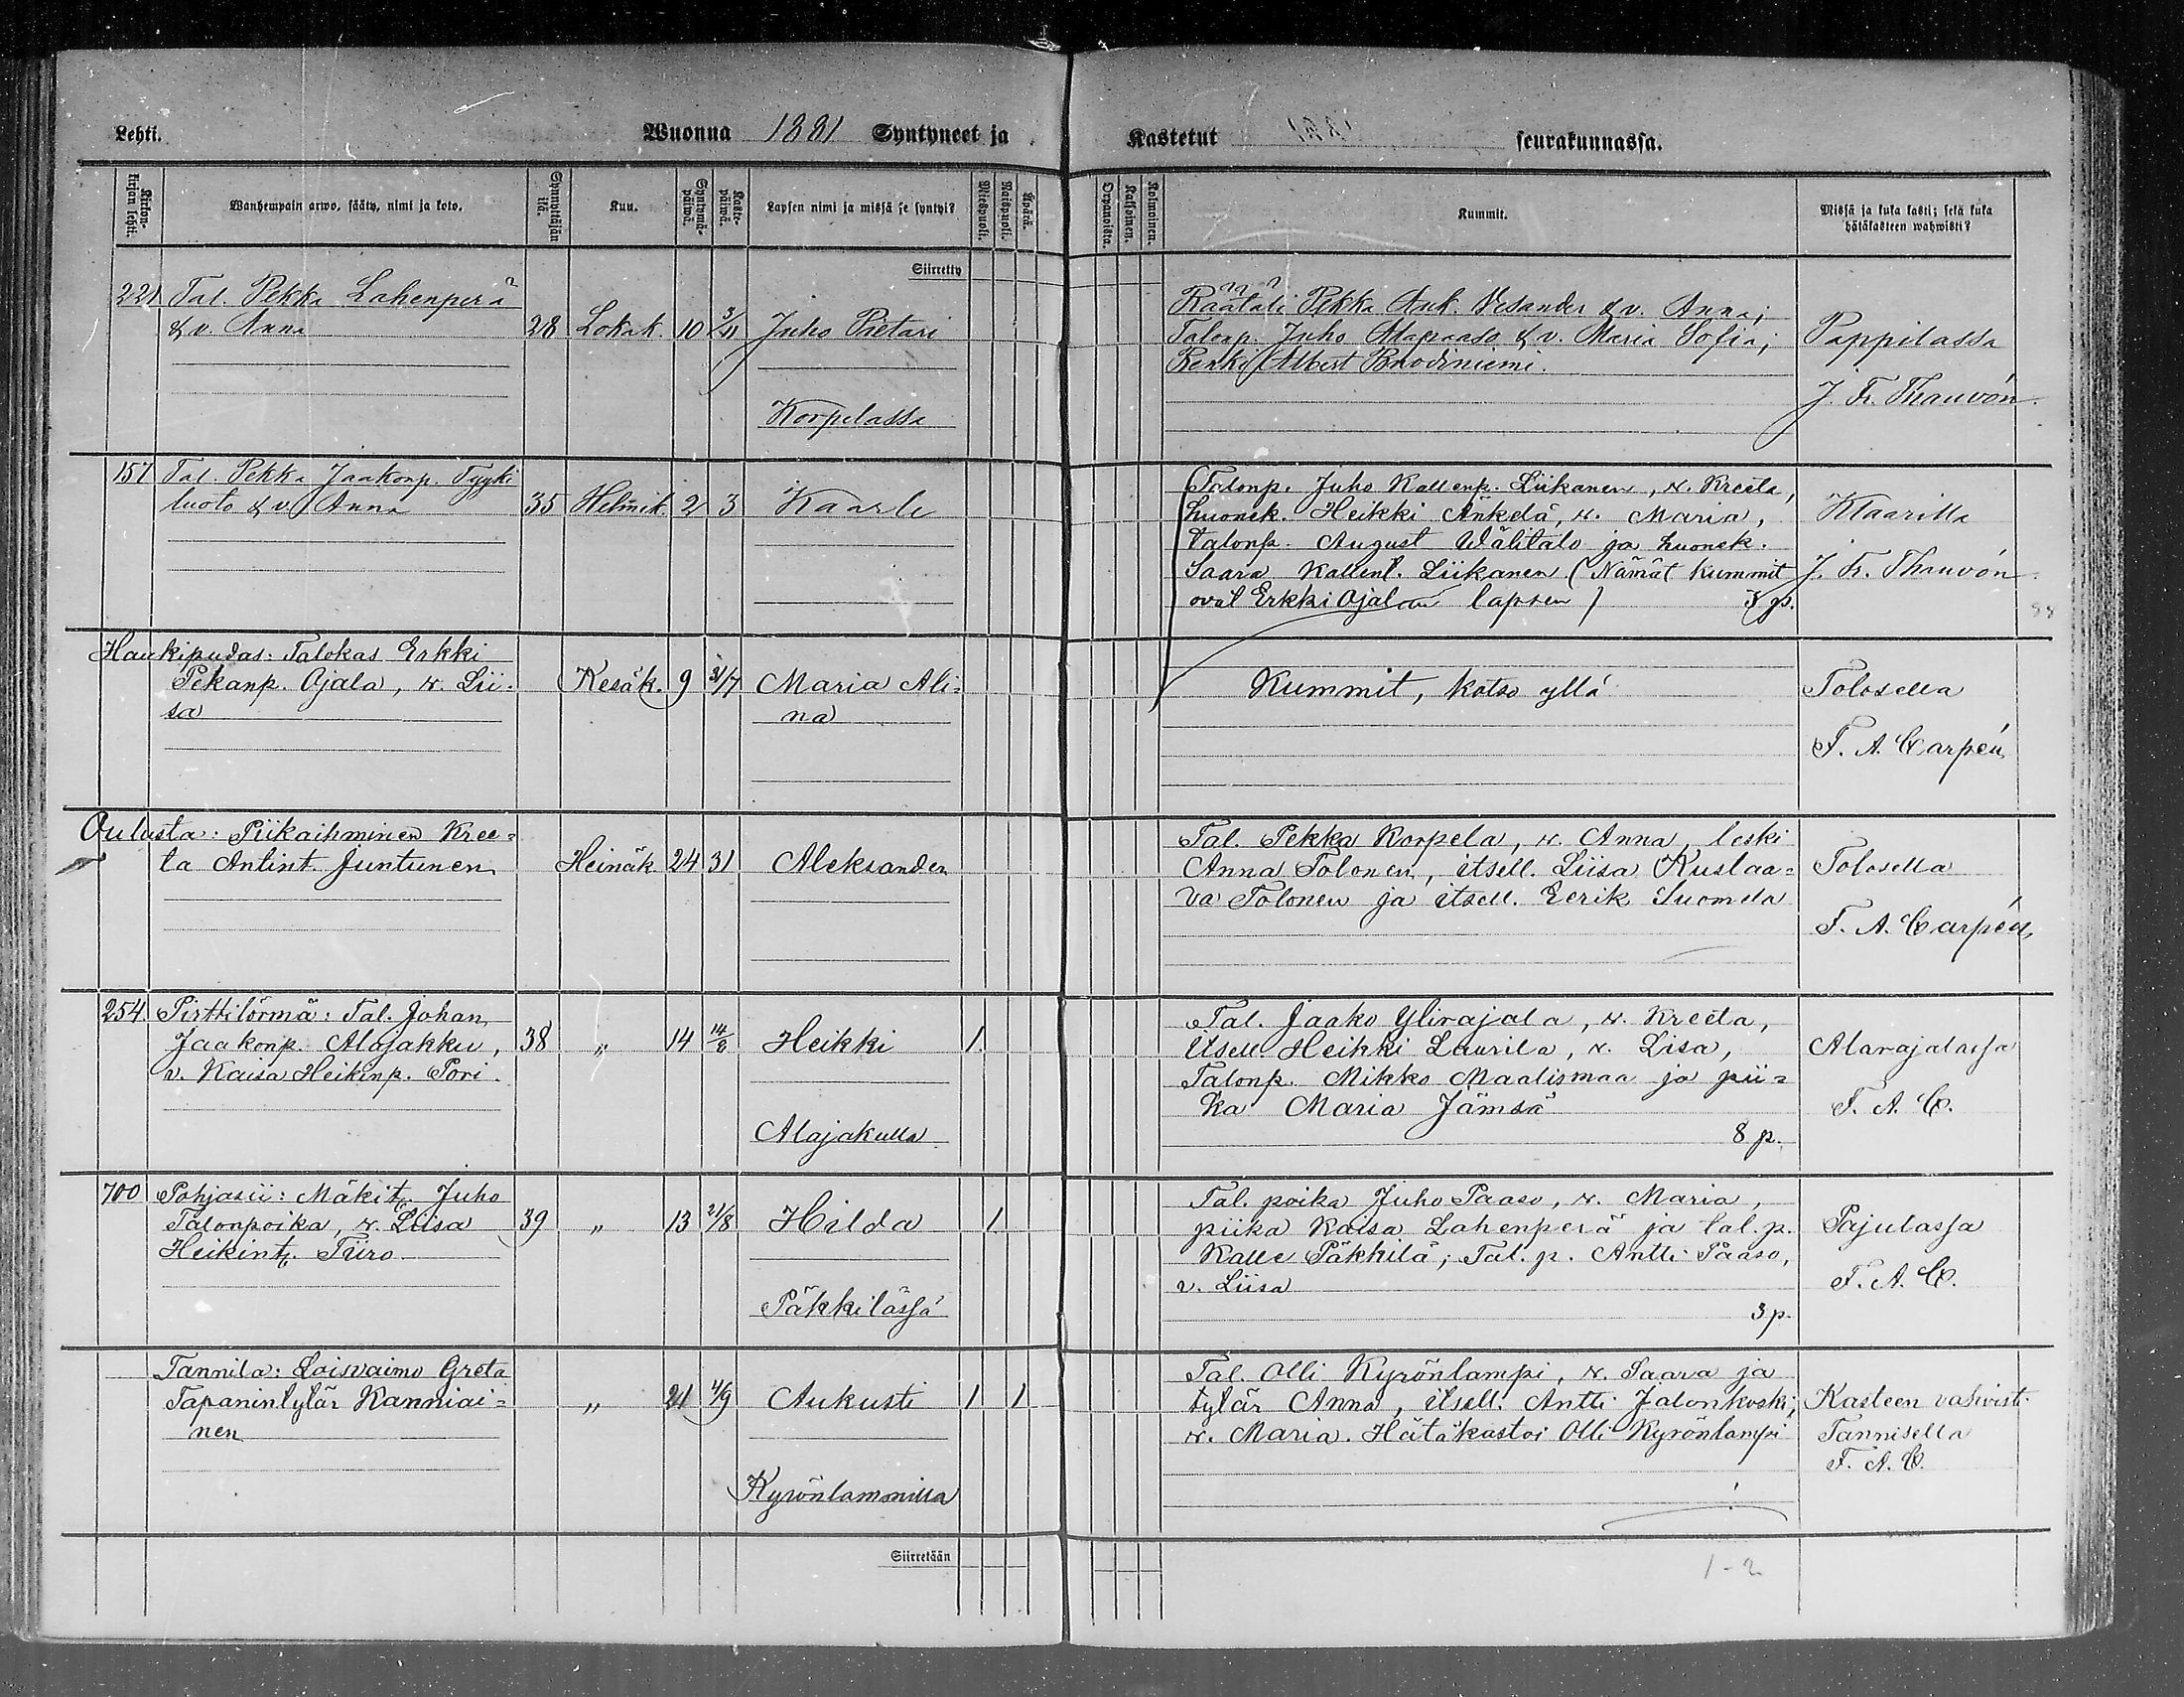 Lehti. Wuonna 1881 Syntyneet ja Kastetut seurakunnassa.
Kirkonkirjan lehti. Wanhempain arwo, sääty, nimi ja koto. Synnyttäjän ikä. Kuu. Syntymäpäiwä. Kastepäiwä. Lapsen nimi ja missä se syntyi? Miespuoli. Naispuoli. Äpärä.
Orpanoista. Kaksoinen. Kolmoinen. Kummit. Missä ja kuka kasti; sekä kuka hätäkasteen wahwisti?
Siirretty
221 Tal. Pekka Lahenperä
& v. Anna 28 Lokak. 10 3/11 Juho Pietari
Korpelassa
Räätäli Pekka Ant. Vesander & v. Anna;
Talonp. Juho Alapaaso & v. Maria Sofia;
Renki Albert
Pappilassa
J. Fr. Thauvón
157 Tal. Pekka Jaakonp. Tyyki
luoto & v. Anna 35 Helmik. 2 3 Kaarle
Talonp. Juho Kallenp. Liikanen, v. Kreeta,
huonek. Heikki Änkelä, v. Maria,
talonp. August Wälitalo ja huonek.
Saara Kallent. Liikanen (Nämät kummit
ovat Erkki Ojalan lapsen) 3 p.
Klaarilla
J. Fr. Thauvón
Haukipudas: Talokas Erkki
Pekanp. Ojala, v. Lii-
sa
Kesäk. 9 31/7 Maria Ali-
na
Kummit, katso yllä
Tolosella
F. A. Carpén
Oulusta: Piikaihminen Kree-
ta Antint. Juntunen Heinäk. 24 31 Aleksander
Tal. Pekka Korpela, v. Anna, leski
Anna Tolonen, itsell. Liisa Kustaa-
va Tolonen ja itsell. Eerik Suomela
Tolosella
F. A. Carpén
254. Pirttitörmä: Tal. Johan
Jaakonp. Alajakku, 38 " 14 14/8 Heikki 1.
v. Kaisa Heikinp. Pori.
Alajakulla
Tal. Jaako Ylirajala, v. Kreeta,
Itsell. Heikki Laurila, v. Lisa,
Talonp. Mikko Maalismaa ja pii-
ka Maria Jämsä
8 p.
Alarajalassa
F. A. C.
700 Pohjasii: Mäkit. Juho
Talonpoika, v. Liisa 39 " 13 21/8 Hilda 1.
Heikint. Tiiro
Päkkilässä
Tal. poika Juho Paaso, v. Maria,
piika Kaisa Lahenperä ja tal. p.
Kalle Päkkilä; Tal. p. Antti Paaso,
v. Liisa
3 p.
Pajulassa
F. A. C.
Tannila: Loisvaimo Greta
Tapanintytär Kanniai-
nen
" 21 4/9 Aukusti 1 1
Kyrönlammilla
Tal. Olli Kyrönlampi, v. Saara ja
tytär Anna, itsell. Antti Jalonkoski,
v. Maria. Hätäkastoi Olli Kyrönlampi
Kasteen vahvisti
Tannisella
F. A. C.
Siirretään
1-2